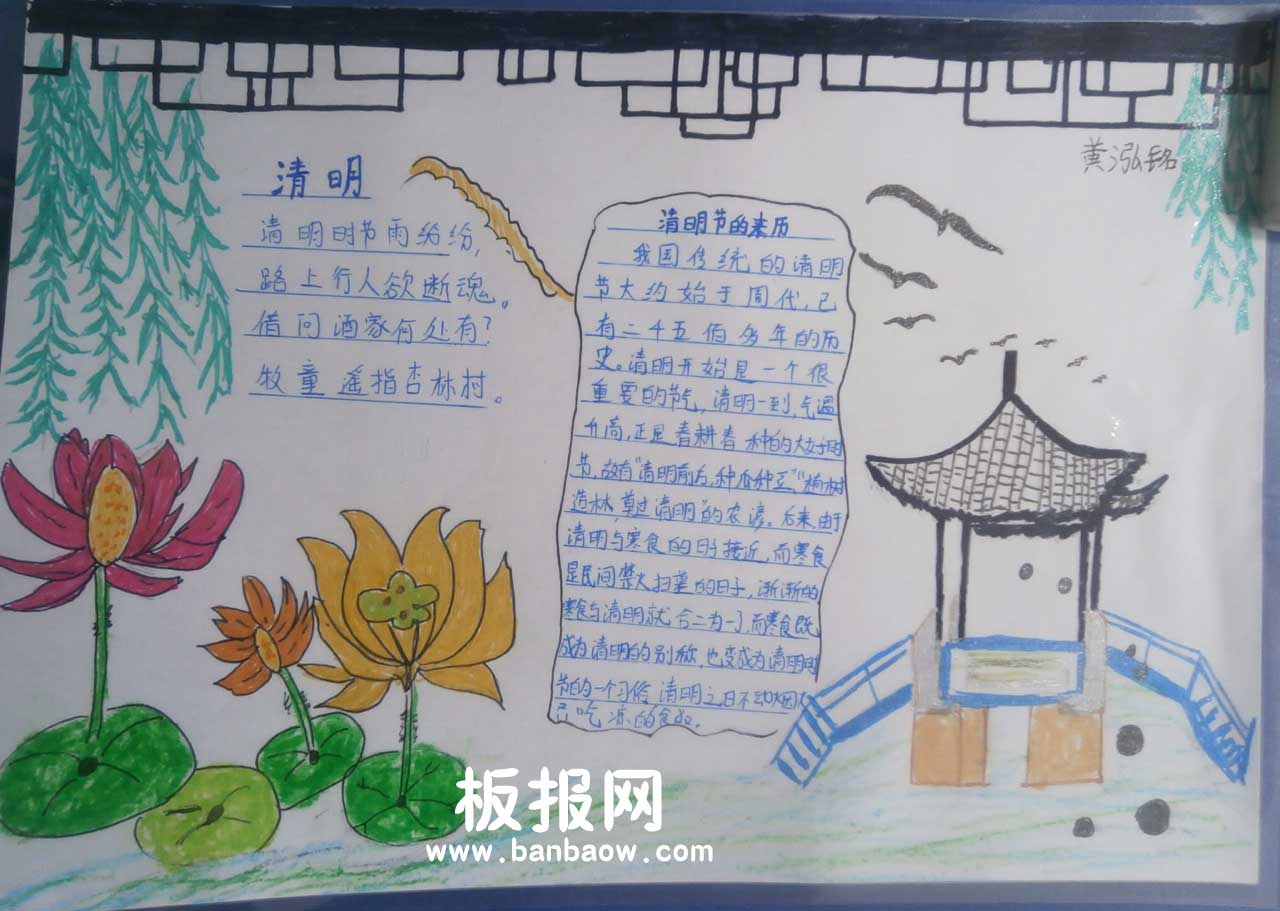 清明
清明时节雨纷纷,
路上行人欲断魂。
借问酒家何处有?
牧童遥指杏林村。
清明节的来历
我国传统的清明
节大约始于周代,已
有二千五佰多年的历
史。清明开始是一个很
重要的节气,清明一到,气温
升高,正是春耕春种的大好时
节,故有"清明前后,种瓜种豆""植树
造林,莫过清明"的农谚。后来,由于
清明与寒食的日子接近,而寒食
是民间禁火扫墓的日子,渐渐的
寒食与清明就合二为一了,而寒食既
成为清明的别称,也变成为清明时
节的一个习俗,清明之日不动烟火
只吃凉的食
黄泓铭
板报网
www.banbaow.com